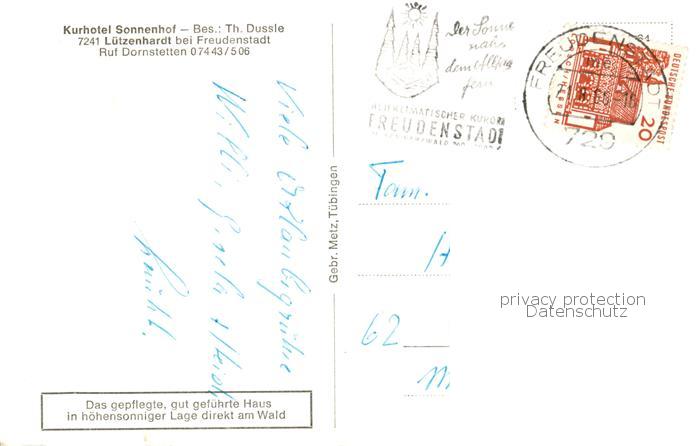 Kurhotel Sonnenhof – Bes.: Th. Dussle
7241 Lützenhardt bei Freudenstadt
Ruf Dornstetten 07443/506
Der Sonne
nah
dem Alltag
fern
HEILKLIMATISCHER KURORT
FREUDENSTADT
FREUDENSTADT
729
DEUTSCHE BUNDESPOST
20
Viele Urlaubsgrüße
Willi, Gisela
Gebr. Metz, Tübingen
Fam.
H
62
M
privacy protection
Datenschutz
Das gepflegte, gut geführte Haus
in höhensonniger Lage direkt am Wald